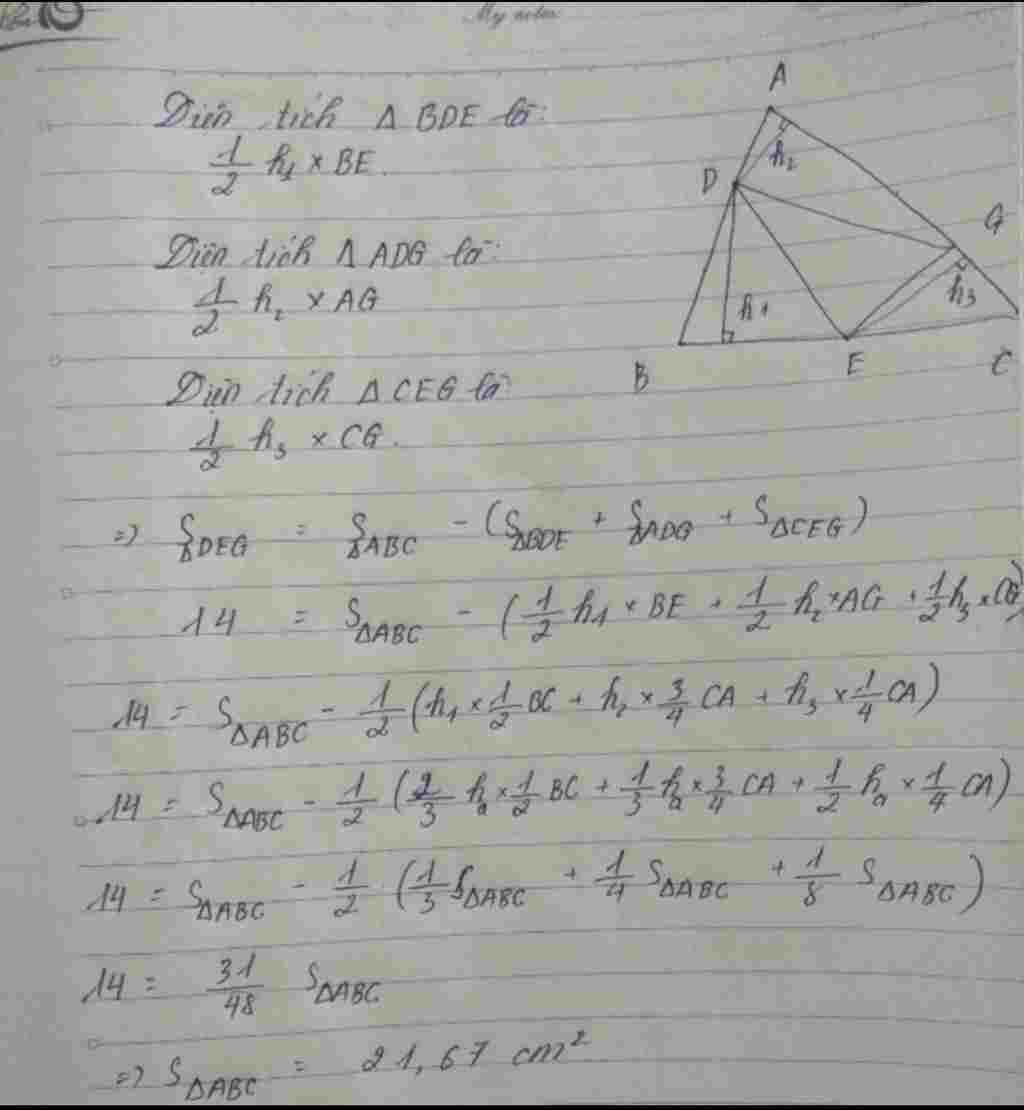 My notes
A
Diện tích Δ BDE là:
1/2 h₁ × BE.
h₂
D
G
Diện tích Δ ADG là:
1/2 h₂ × AG
h₃
h₁
B
E
C
Diện tích Δ CEG là
1/2 h₃ × CG.
=> S ΔDEG = S ΔABC - (S ΔBDE + S ΔADG + S ΔCEG)
14 = S ΔABC - (1/2 h₁ × BE + 1/2 h₂ × AG + 1/2 h₃ × CG)
14 = S ΔABC - 1/2 (h₁ × 1/2 BC + h₂ × 3/4 CA + h₃ × 1/4 CA)
14 = S ΔABC - 1/2 (2/3 hₐ × 1/2 BC + 1/3 hₐ × 3/4 CA + 1/2 hₐ × 1/4 CA)
14 = S ΔABC - 1/2 (1/3 S ΔABC + 1/4 S ΔABC + 1/8 S ΔABC)
14 = 31/48 S ΔABC
=> S ΔABC = 21,67 cm²